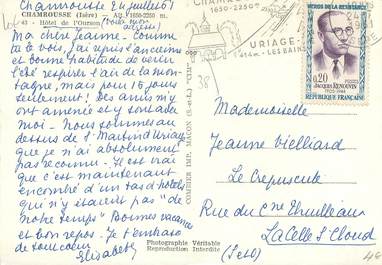 Chamrousse 24 juillet 61
CHAMROUSSE (Isère) Alt. 1650-2250 m.
43 - Hôtel de l'Ourson (voilà mon
adresse)
Ma chère Jeanne - Comme
tu le vois, j'ai repris l'ancienne
et bonne habitude de venir
l'été respirer l'air de la mon-
tagne, mais pour 15 jours
seulement ! Des amis m'y
ont amenée et y sont avec
moi - Nous sommes au
dessus de St Martin d'Uriage
que je n'ai absolument
pas reconnu - Il est vrai
que c'est maintenant
encombré d'un tas d'hôtels
qui n'y étaient pas "de
notre temps" Bonnes vacances
et bon repos - Je t'embrasse
de tout cœur
Elisabeth
COMBIER IMP. MACON (S.-et-L.) "CIM"
Photographie Véritable
Reproduction Interdite
38
CHAMROUSSE
1650-2250
URIAGE-
LES BAINS
HÉROS DE LA RÉSISTANCE
0,20
POSTES
JACQUES RENOUVIN
1905-1944
RÉPUBLIQUE FRANÇAISE
Mademoiselle
Jeanne Vielliard
Le Crépuscule
Rue du Cne
La Celle St Cloud
(S et O)